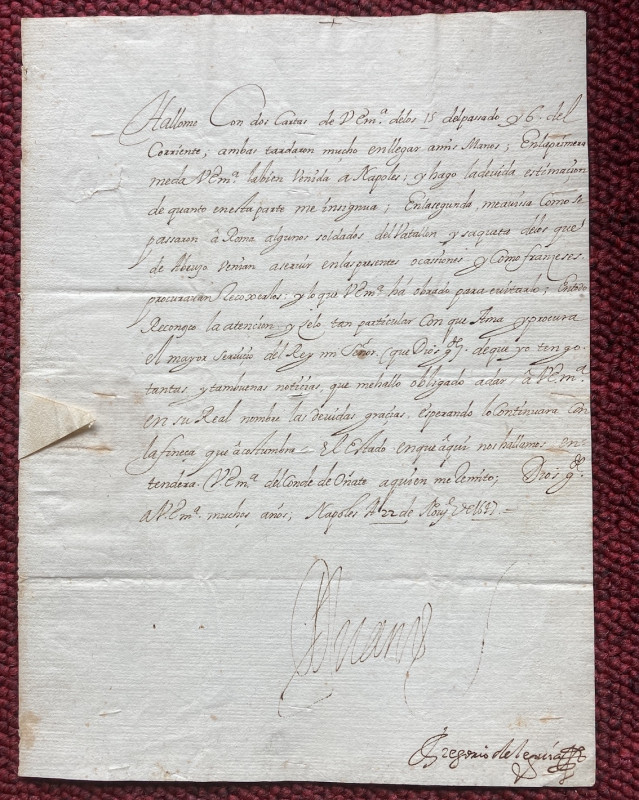 +
Hallome Con dos Cartas de V Em.ª delos 15 delpasado y 6 del
Corriente; ambas tardaron mucho enllegar amis Manos; Enlaprimera
meda V Em.ª labien Venida a Napoles; y hago ladevida estimacion
de quanto enesta parte me insignua; Enlasegunda, meavisa Como se
passaron â Roma algunos soldados del Vatalon y saqueta delos que
de Abrujo Venian aservir enlaspresentes ocassiones y Como franceses
procuravan Recoxerllos: y lo que V Em.ª há obrado para evitarlo; Entodo
Reconozco la atención y Celo tan particular Con que Ama y procura
El mayor Servicio del Rey mi Señor (que Dios g.de) deque yo tengo
tantas y tambuenas noticias, que mehallo obligado adar â V Em.ª
en su Real nombre las devidas gracias, esperando lo Continuara Con
lafineça que acostumbra = El Estado enque aqui nos hallamos en-
tendera V Em.ª del Conde de Oñate aquien me Remito; Dios g.de
a V. Em.ª muchos años; Napoles A 22 de
Don Juan
Gregorio de